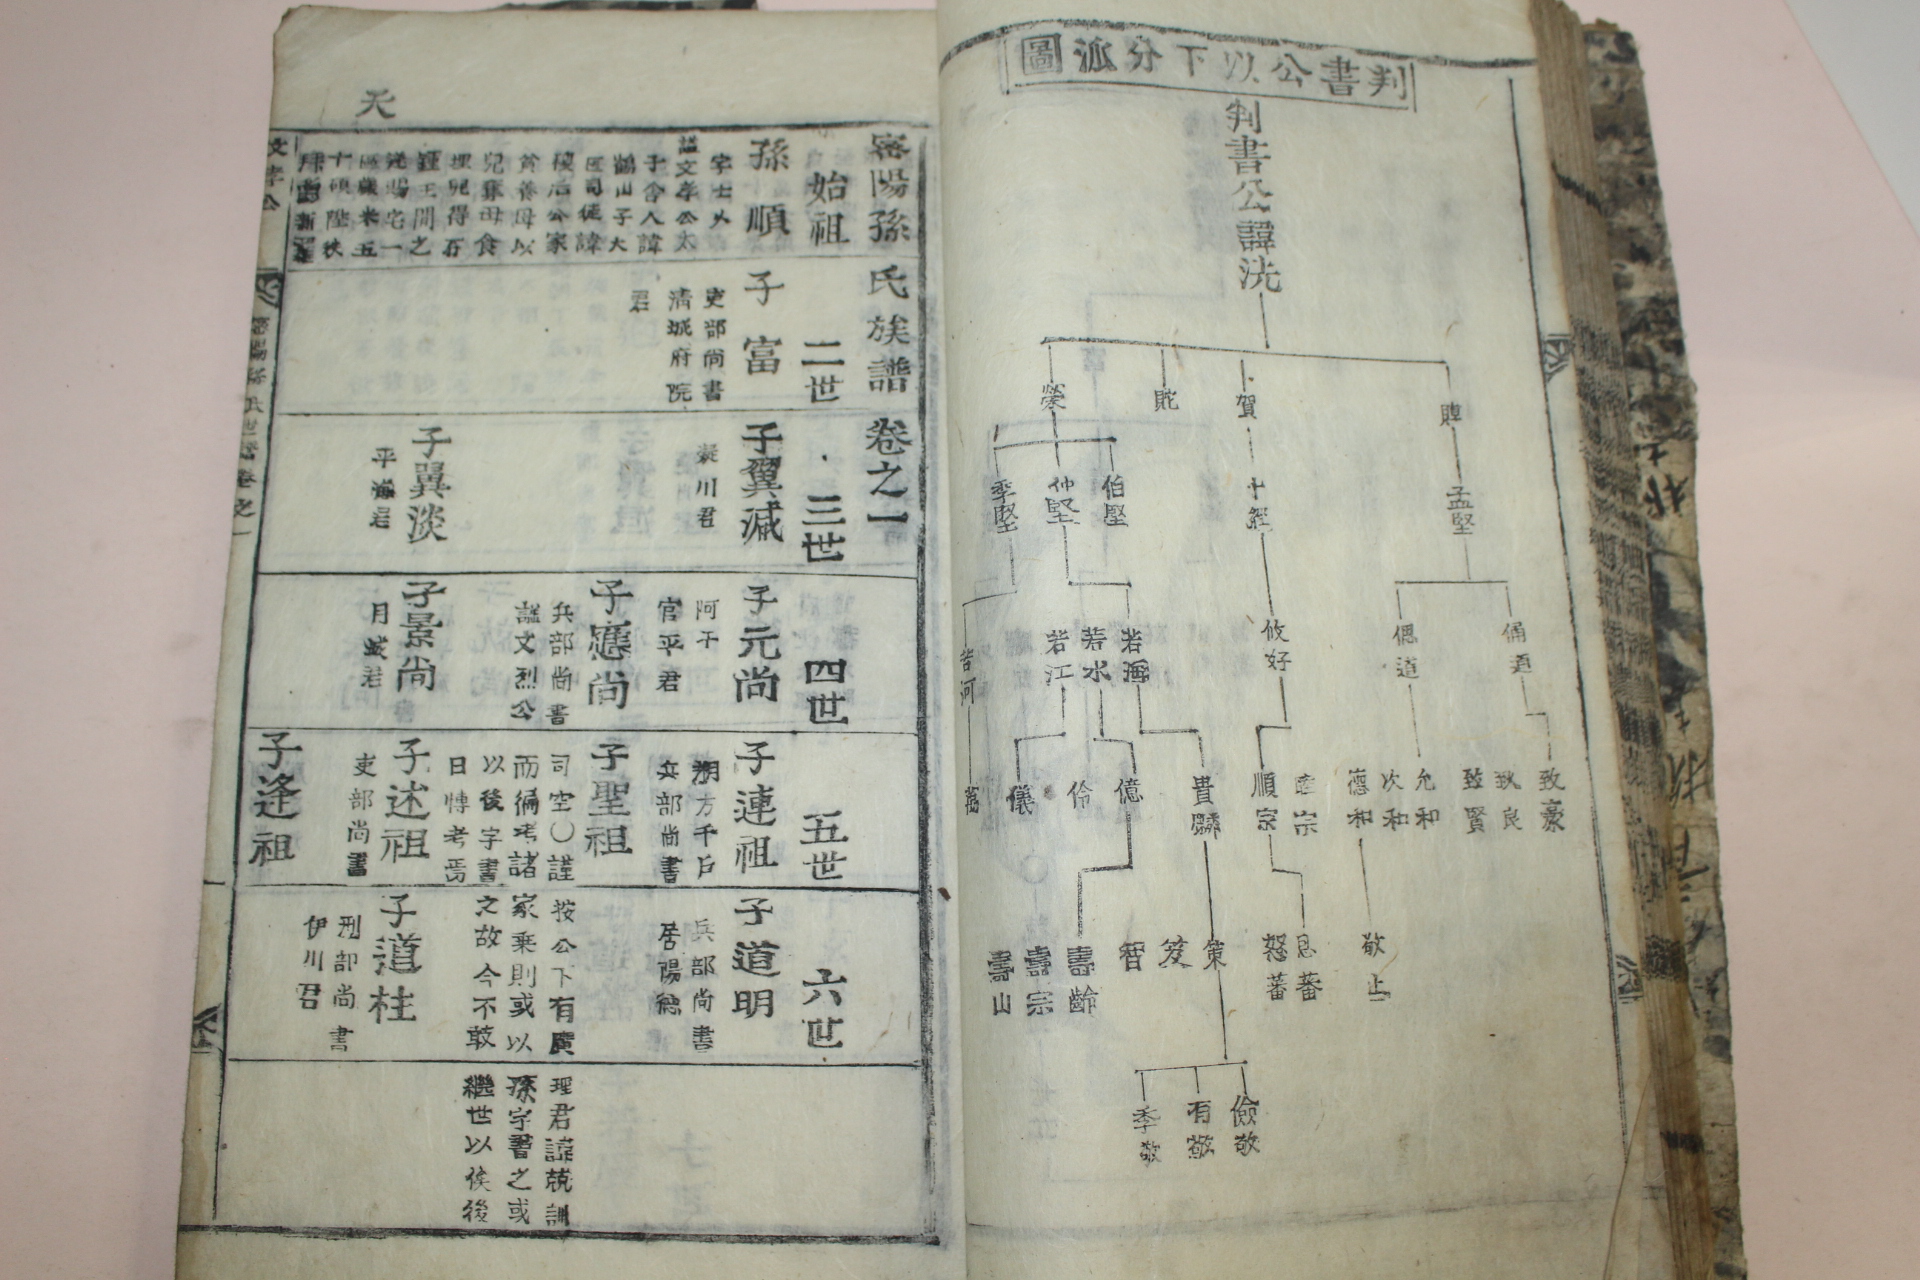 判書公以下分派圖
判書公諱洗
榮
賀
孟堅
伯堅
仲堅
季堅
攸好
若海
若水
若江
若河
致豪
致良
致賢
允和
次和
德和
順宗
貴麟
億
伶
儀
敬止
蕃
蕃
策
笈
智
壽齡
壽宗
壽山
儉敬
有敬
季敬
天
密陽孫氏族譜卷之一
始祖
二世
三世
四世
五世
六世
孫順
謚文孝公太
子舍人諱
鶴山子大
匠司徒諱
稷后公家
貧養母以
兒奪母食
埋兒得石
鍾王聞之
十碩陞秩
子富
吏部尚書
清城府院
君
子翼減
凝川君
子翼淡
平海君
子元尚
阿干
官平君
子應尚
兵部尚書
謚文烈公
子景尚
月城君
子連祖
朔方千戶
兵部尚書
子聖祖
司空〇謹
按公下有廣
理君諱兢訓
而徧考諸
家乘則或以
孫字書之或
以後字書
之故今不敢
繼世以俟後
日博考焉
子述祖
吏部尚書
子逢祖
子道明
兵部尚書
子道柱
刑部尚書
伊川君
文孝公